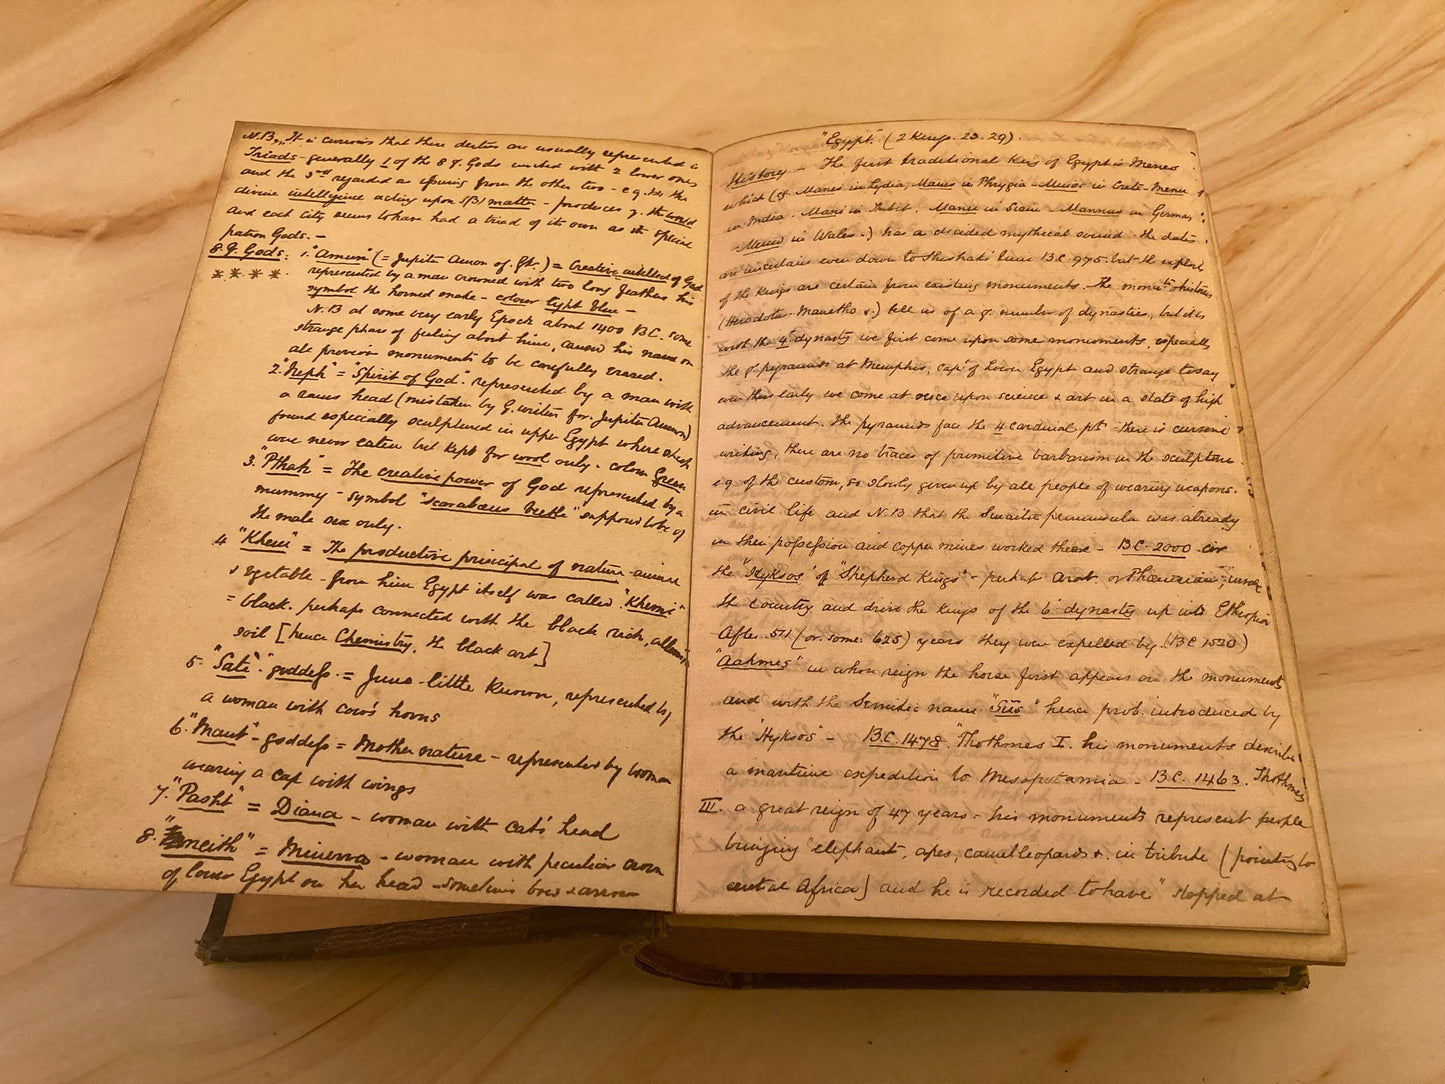 N.B. It is curious that these deities are usually represented in
Triads - generally 1 of the 8 g. Gods united with 2 lower ones
and the 3rd regarded as issuing from the other two - e.g. the
divine intelligence acting upon matter - produces 3 the world
and each City seems to have had a triad of its own as its special
patron Gods. -
8 g. Gods. 1. "Amun" (= Jupiter Amon of Gk.) = Creative intellect of God
* * * * represented by a man crowned with two long feathers his
symbol the horned snake - colour light blue -
N.B at some very early Epoch about 1400 B.C. some
strange phase of feeling about him, caused his name on
all previous monuments to be carefully erased.
2. "Neph" = "Spirit of God". represented by a man with
a rams head (mistaken by G. writers for Jupiter Amon)
found especially sculptured in upper Egypt where sheep
were never eaten but kept for wool only - colour Green
3. "Pthah" = The creative power of God represented by a
mummy - symbol "scarabaeus beetle" supposed to be of
the male sex only.
4 "Khem" = The productive principal of nature - animal
& vegetable - from him Egypt itself was called "Khemi"
= black. perhaps connected with the black rich,
soil [hence Chemistry, the black art]
5. "Sate" - goddess = Juno - little known, represented by
a woman with cow's horns
6. "Maut" - goddess = Mother nature - represented by woman
wearing a cap with wings
7. "Pasht" = Diana - woman with cat's head
8. "neith" = Minerva - woman with peculiar crown
of lower Egypt on her head - sometimes bow & arrow
"Egypt." (2 Kings. 23. 29).
History - The first traditional King of Egypt is Menes
which (cf Manes in Lydia, Manis in Phrygia - Minos in Crete - Menu
in India. Mani in Tibet. Manu in Siam - Mannus in German
- Menw in Wales -) has a decided mythical sound - the dates
are uncertain even down to Sheshak's time B.C. 975. but the
of the Kings are certain from existing monuments. The historians
(Herodotus - Manetho &) tell us of a g. number of dynasties, but
with the 4th dynasty we first come upon some monuments. especially
the g. pyramids at Memphis, cap. of Lower Egypt and strange to say
even thus early we come at once upon science & art in a state of high
advancement. The pyramids face the 4 cardinal pts there is cursive
writing, there are no traces of primitive barbarism in the sculpture
e.g. of the custom, so slowly given up by all people of wearing weapons.
in civil life and N.B that the Sinaitic peninsula was already
in their possession and copper mines worked there - B.C. 2000. cir
the "Hyksos" or "Shepherd Kings" - perhaps Arab. or Phoenician
the country and drive the Kings of the 6 dynasty up into Ethiopia
After 511 (or some 625) years they were expelled by (B.C 1520)
"Aahmes" in whose reign the horse first appears on the monuments
and with the Semitic name "Sus" hence prob. introduced by
the "Hyksos" - B.C. 1478. Thothmes I. his monuments describe
a maritime expedition to Mesopotamia - B.C. 1463. Thothmes
III. a great reign of 47 years - his monuments represent people
bringing elephant, apes, camelleopards &. in tribute (pointing to
central Africa) and he is recorded to have "stopped at